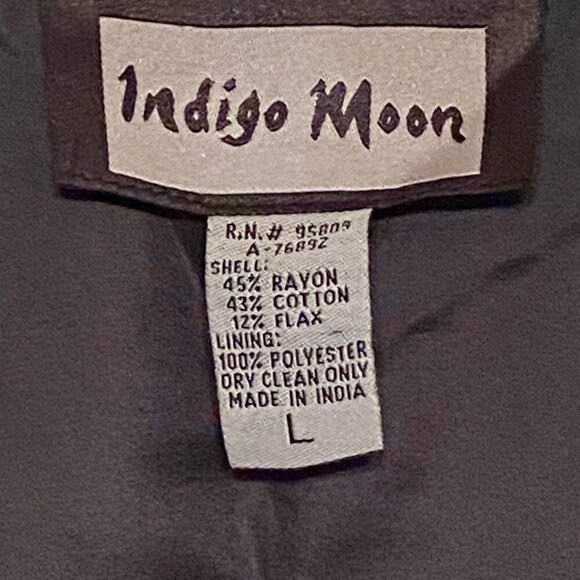 Indigo Moon
R.N.# 95809
A-76892
SHELL:
45% RAYON
43% COTTON
12% FLAX
LINING:
100% POLYESTER
DRY CLEAN ONLY
MADE IN INDIA
L